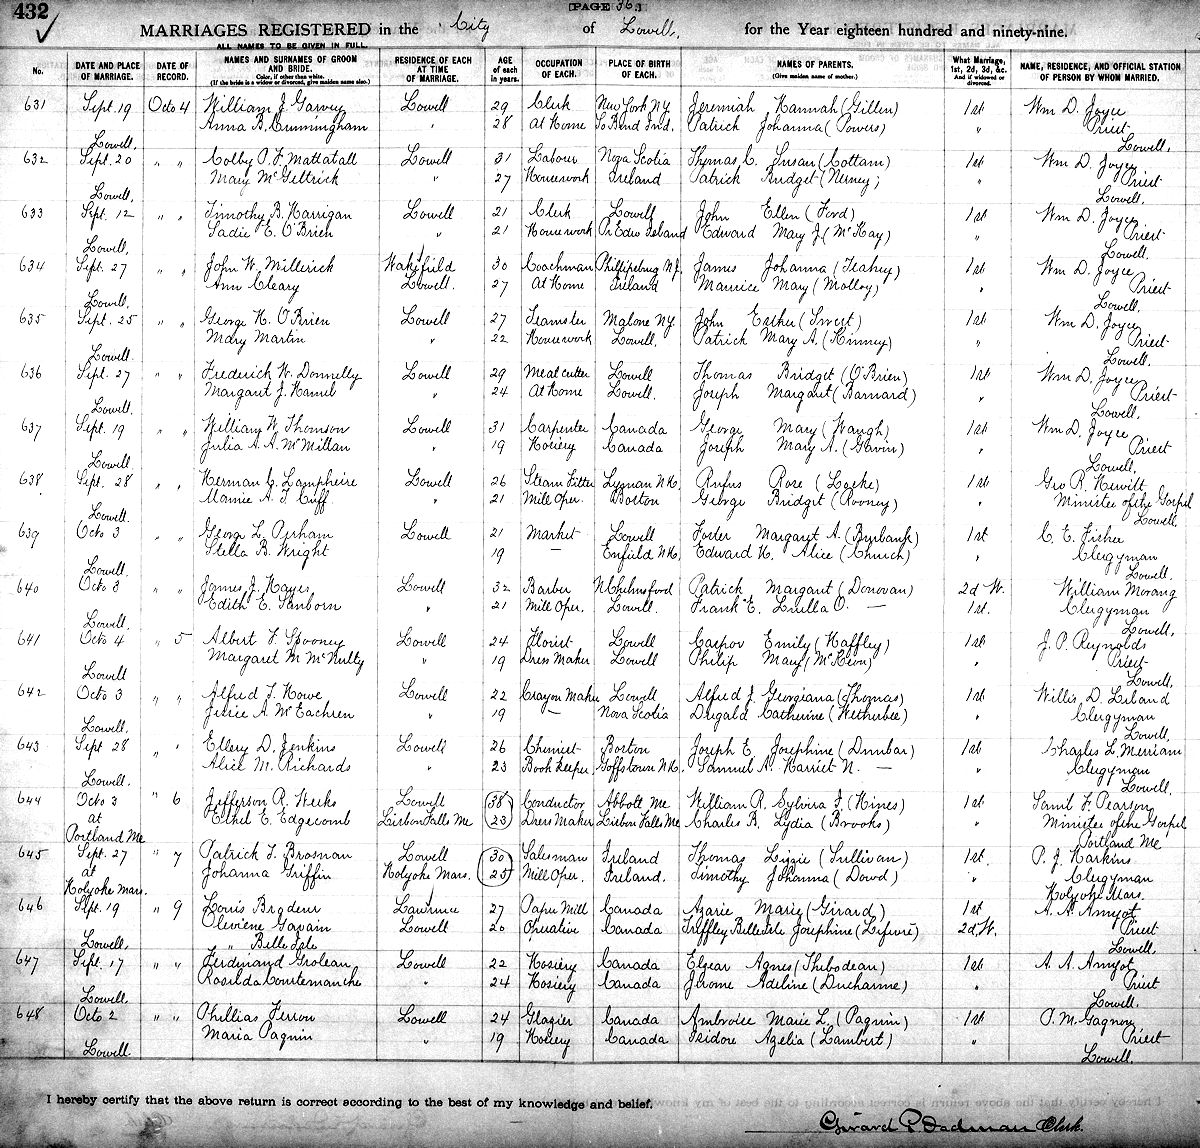 432
[PAGE 36.]
MARRIAGES REGISTERED in the City of Lowell, for the Year eighteen hundred and ninety-nine.
ALL NAMES TO BE GIVEN IN FULL.
No. DATE AND PLACE OF MARRIAGE. DATE OF RECORD. NAMES AND SURNAMES OF GROOM AND BRIDE. Color, if other than white. (If the bride is a widow or divorced, give maiden name also.) RESIDENCE OF EACH AT TIME OF MARRIAGE. AGE of each in years. OCCUPATION OF EACH. PLACE OF BIRTH OF EACH. NAMES OF PARENTS. (Give maiden name of mother.) What Marriage, 1st, 2d, 3d, &c. And if widowed or divorced. NAME, RESIDENCE, AND OFFICIAL STATION OF PERSON BY WHOM MARRIED.
631 Sept. 19 Octo 4 William J. Garvey Lowell 29 Clerk New York N.Y. Jeremiah Hannah (Gillen) 1st Wm D. Joyce
Anna B. Cunningham " 28 At Home So Bend Ind. Patrick Johanna (Powers) " Priest
Lowell, Lowell,
632 Sept. 20 " " Colby P. F. Mattatall Lowell 31 Labour Nova Scotia Thomas C. Susan (Cottam) 1st Wm D. Joyce
Mary McGettrick " 27 Housework Ireland Patrick Bridget (Nerney) Priest
Lowell, Lowell.
633 Sept. 12 " " Timothy B. Harrigan Lowell 21 Clerk Lowell John Ellen (Ford) 1st Wm D. Joyce
Sadie E. O'Brien " 21 Housework Pr Edw Island Edward Mary J. (McKay) " Priest
Lowell, Lowell.
634 Sept. 27 " " John W. Millerick Wakefield 30 Coachman Phillipsburg N.J. James Johanna (Leahey) 1st Wm D. Joyce
Ann Cleary Lowell. 27 At Home Ireland Maurice Mary (Molloy) " Priest
Lowell. Lowell.
635 Sept. 25 " " George H. O'Brien Lowell 27 Teamster Malone N.Y. John Esther (Swert) 1st Wm D. Joyce
Mary Martin " 22 Housework Lowell, Patrick Mary A. (Kinney) " Priest
Lowell. Lowell.
636 Sept. 27 " " Frederick W. Donnelly Lowell 29 Meat cutter Lowell Thomas Bridget (O'Brien) 1st Wm D. Joyce
Margaret J. Hamel " 24 At Home Lowell. Joseph Margaret (Barnard) " Priest
Lowell. Lowell.
637 Sept. 19 " " William W. Thomson Lowell 31 Carpenter Canada George Mary (Waugh) 1st Wm D. Joyce
Julia A. A. McMillan 19 Hosiery Canada Joseph Mary A. (Gavin) " Priest
Lowell Lowell,
638 Sept. 28 " " Herman C. Lampheire Lowell 26 Steam Fitter Lyman N.H. Rufus Rose (Locke) 1st Geo R. Hewitt
Mamie A. F. Cuff " 21 Mill Oper. Boston George Bridget (Rooney) " Minister of the Gospel
Lowell. Lowell.
639 Octo 3 " " George L. Perham Lowell 21 Market Lowell Foster Margaret A. (Burbank) 1st C. E. Fisher
Stella B. Wright 19 — Enfield N.H. Edward H. Alice (Church) " Clergyman
Lowell. Lowell.
640 Octo 3 " " James J. Hayes Lowell 32 Barber N. Chelmsford Patrick Margaret (Donovan) 2d W. William Morang
Edith E. Sanborn " 21 Mill Oper. Lowell. Frank E. Luella O. — 1st. Clergyman
Lowell. Lowell,
641 Octo 4 " 5 Albert F. Spooney Lowell 24 Florist Lowell Caspar Emily (Haffley) 1st J. P. Reynolds
Margaret M. McNulty " 19 Dress Maker Lowell Philip Mary (McKeon) " Priest
Lowell Lowell,
642 Octo 3 " " Alfred F. Howe Lowell 22 Crayon Maker Lowell Alfred J. Georgiana (Thomas) 1st Willis D. Leland
Jessie A. McEachren " 19 — Nova Scotia Dugald Catherine (Wetherbee) " Clergyman
Lowell, Lowell
643 Sept 28 " " Ellery D. Jenkins Lowell 26 Chemist Boston Joseph E. Josephine (Dunbar) 1st Charles L. Merriam
Alice M. Richards " 23 Book keeper Goffstown N.H. Samuel A. Harriet N. — " Clergyman
Lowell. Lowell.
644 Octo 3 " 6 Jefferson R. Weeks Lowell 38 Conductor Abbott Me William R. Sylvira J. (Hines) 1st Saml F. Pearson
at Ethel E. Edgecomb Lisbon Falls Me 23 Dress Maker Lisbon Falls Me Charles B. Lydia (Brooks) " Minister of the Gospel
Portland Me Portland Me
645 Sept. 27 " 7 Patrick F. Brosnan Lowell 30 Salesman Ireland Thomas Lizzie (Sullivan) 1st. P. J. Harkins
at Johanna Griffin Holyoke Mass. 25 Mill Oper. Ireland. Timothy Johanna (Dowd) " Clergyman
Holyoke Mass. Holyoke Mass.
646 Sept. 19 " 9 Louis Brodeur Lawrence 27 Paper Mill Canada Azarie Marie (Girard) 1st A. A. Amyot
Oleviene Gavain Lowell 20 Operative Canada Treffley Belleisle Josephine (Lefevre) 2d W. Priest
Lowell, " Belle Isle Lowell.
647 Sept. 17 " " Ferdinand Grolean Lowell 22 Hosiery Canada Elzear Agnes (Thibodeau) 1st A. A. Amyot
Rosilda Courtemanche " 24 Hosiery Canada Jerome Adeline (Ducharme) " Priest
Lowell. Lowell.
648 Octo 2 " " Phillias Ferron Lowell 24 Glazier Canada Ambroise Marie L. (Paquin) 1st O. M. Gagnon
Maria Paquin " 19 Hosiery Canada Isidore Azelia (Lambert) " Priest
Lowell. Lowell.
I hereby certify that the above return is correct according to the best of my knowledge and belief.
Girard P. Dadman Clerk.